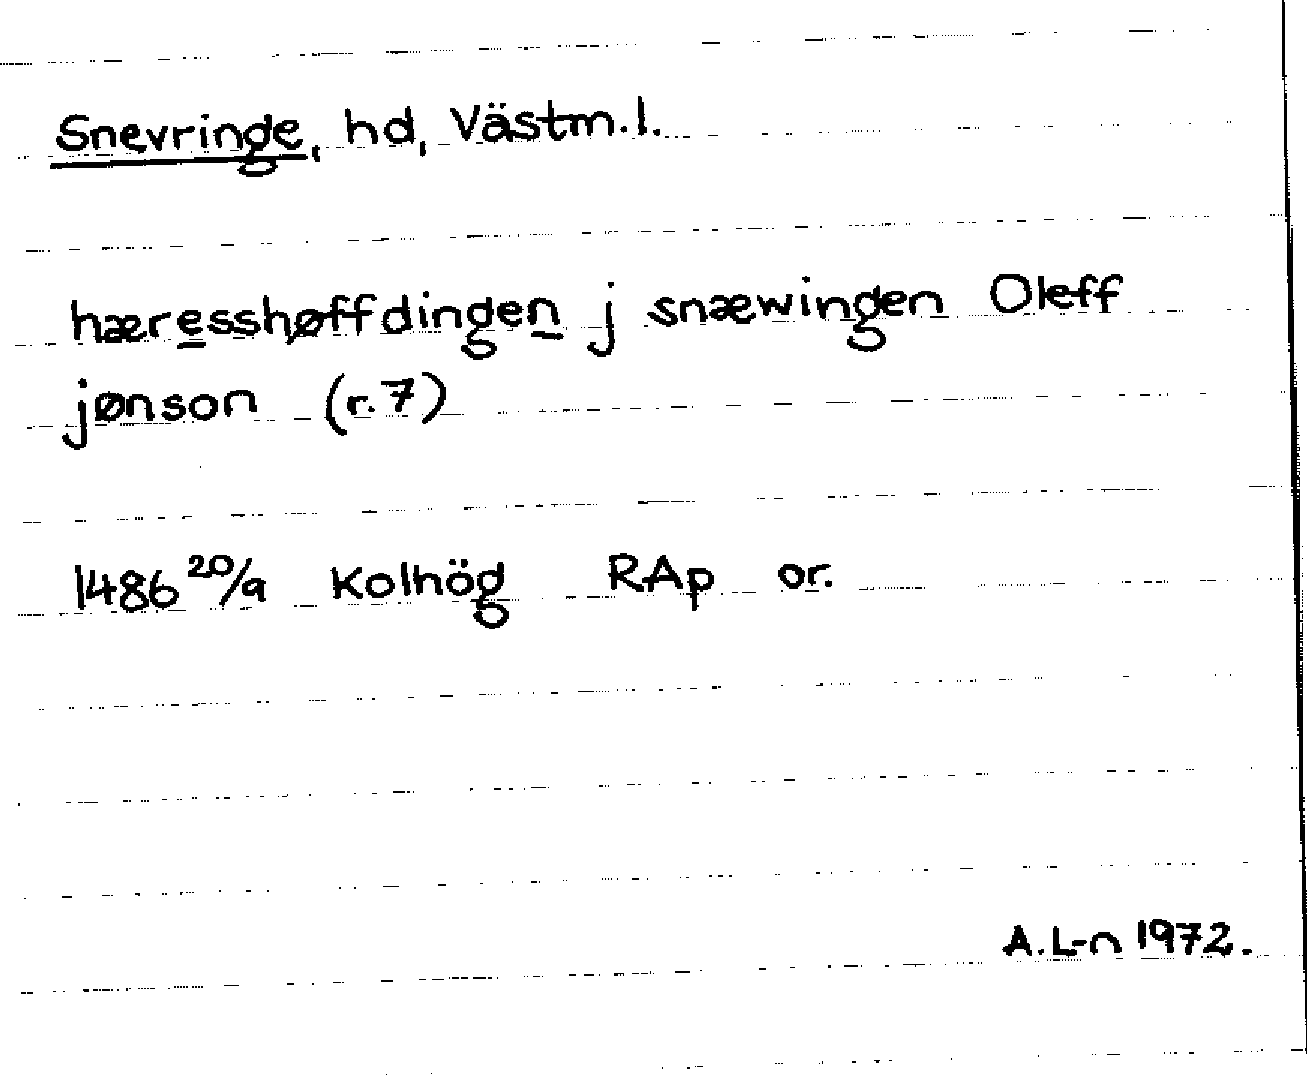 Snevringe, hd, Västm.l.
hæresshøffdingen j snæwingen Oleff
jønson (r.7)
1486 20/9 Kolhög RAp or.
A.L-n 1972.